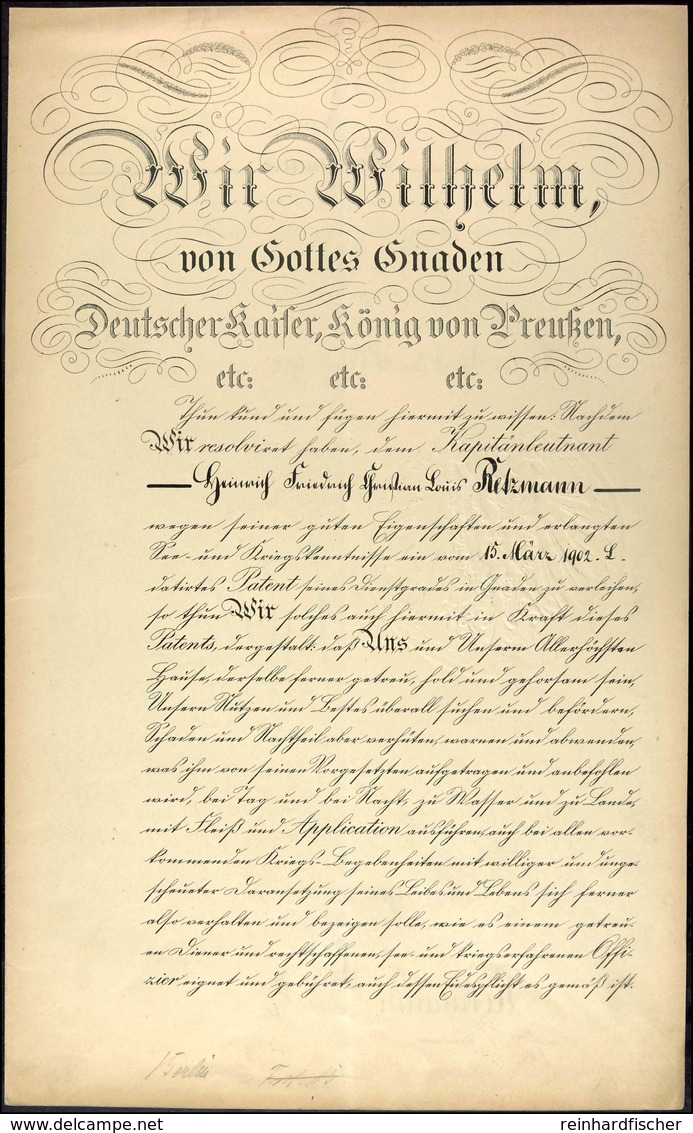 Wir Wilhelm,
von Gottes Gnaden
Deutscher Kaiser, König von Preußen,
etc: etc: etc:
Thun kund und fügen hiermit zu wissen: Nachdem
Wir resolviret haben, dem Kapitänleutnant
Heinrich Friedrich Christian Louis Retzmann
wegen seiner guten Eigenschaften und erlangten
See- und Kriegskenntnisse ein vom 15. März 1902. L-
datirtes Patent seines Dienstgrades in Gnaden zu verleihen,
so thun Wir solches auch hiermit in Kraft dieses
Patents, dergestalt: daß Uns und Unserm Allerhöchsten
Hause, derselbe ferner getreu, hold und gehorsam sein,
Unsern Nutzen und Bestes überall suchen und befördern,
Schaden und Nachtheil aber verhüten, warnen und abwenden,
was ihm von seinen Vorgesetzten aufgetragen und anbefohlen
wird, bei Tag und bei Nacht, zu Wasser und zu Lande,
mit Fleiß und Application ausführen, auch bei allen vor-
kommenden Kriegs-Begebenheiten mit williger und unge-
scheueter Daransetzung seines Leibes und Lebens sich ferner
also verhalten und bezeigen solle, wie es einem getreu-
en Diener und rechtschaffenen, see- und kriegserfahrenen Offi-
zier eignet und gebühret, auch dessen Eidespflicht es gemäß ist.
Berlin
reinhardfischer